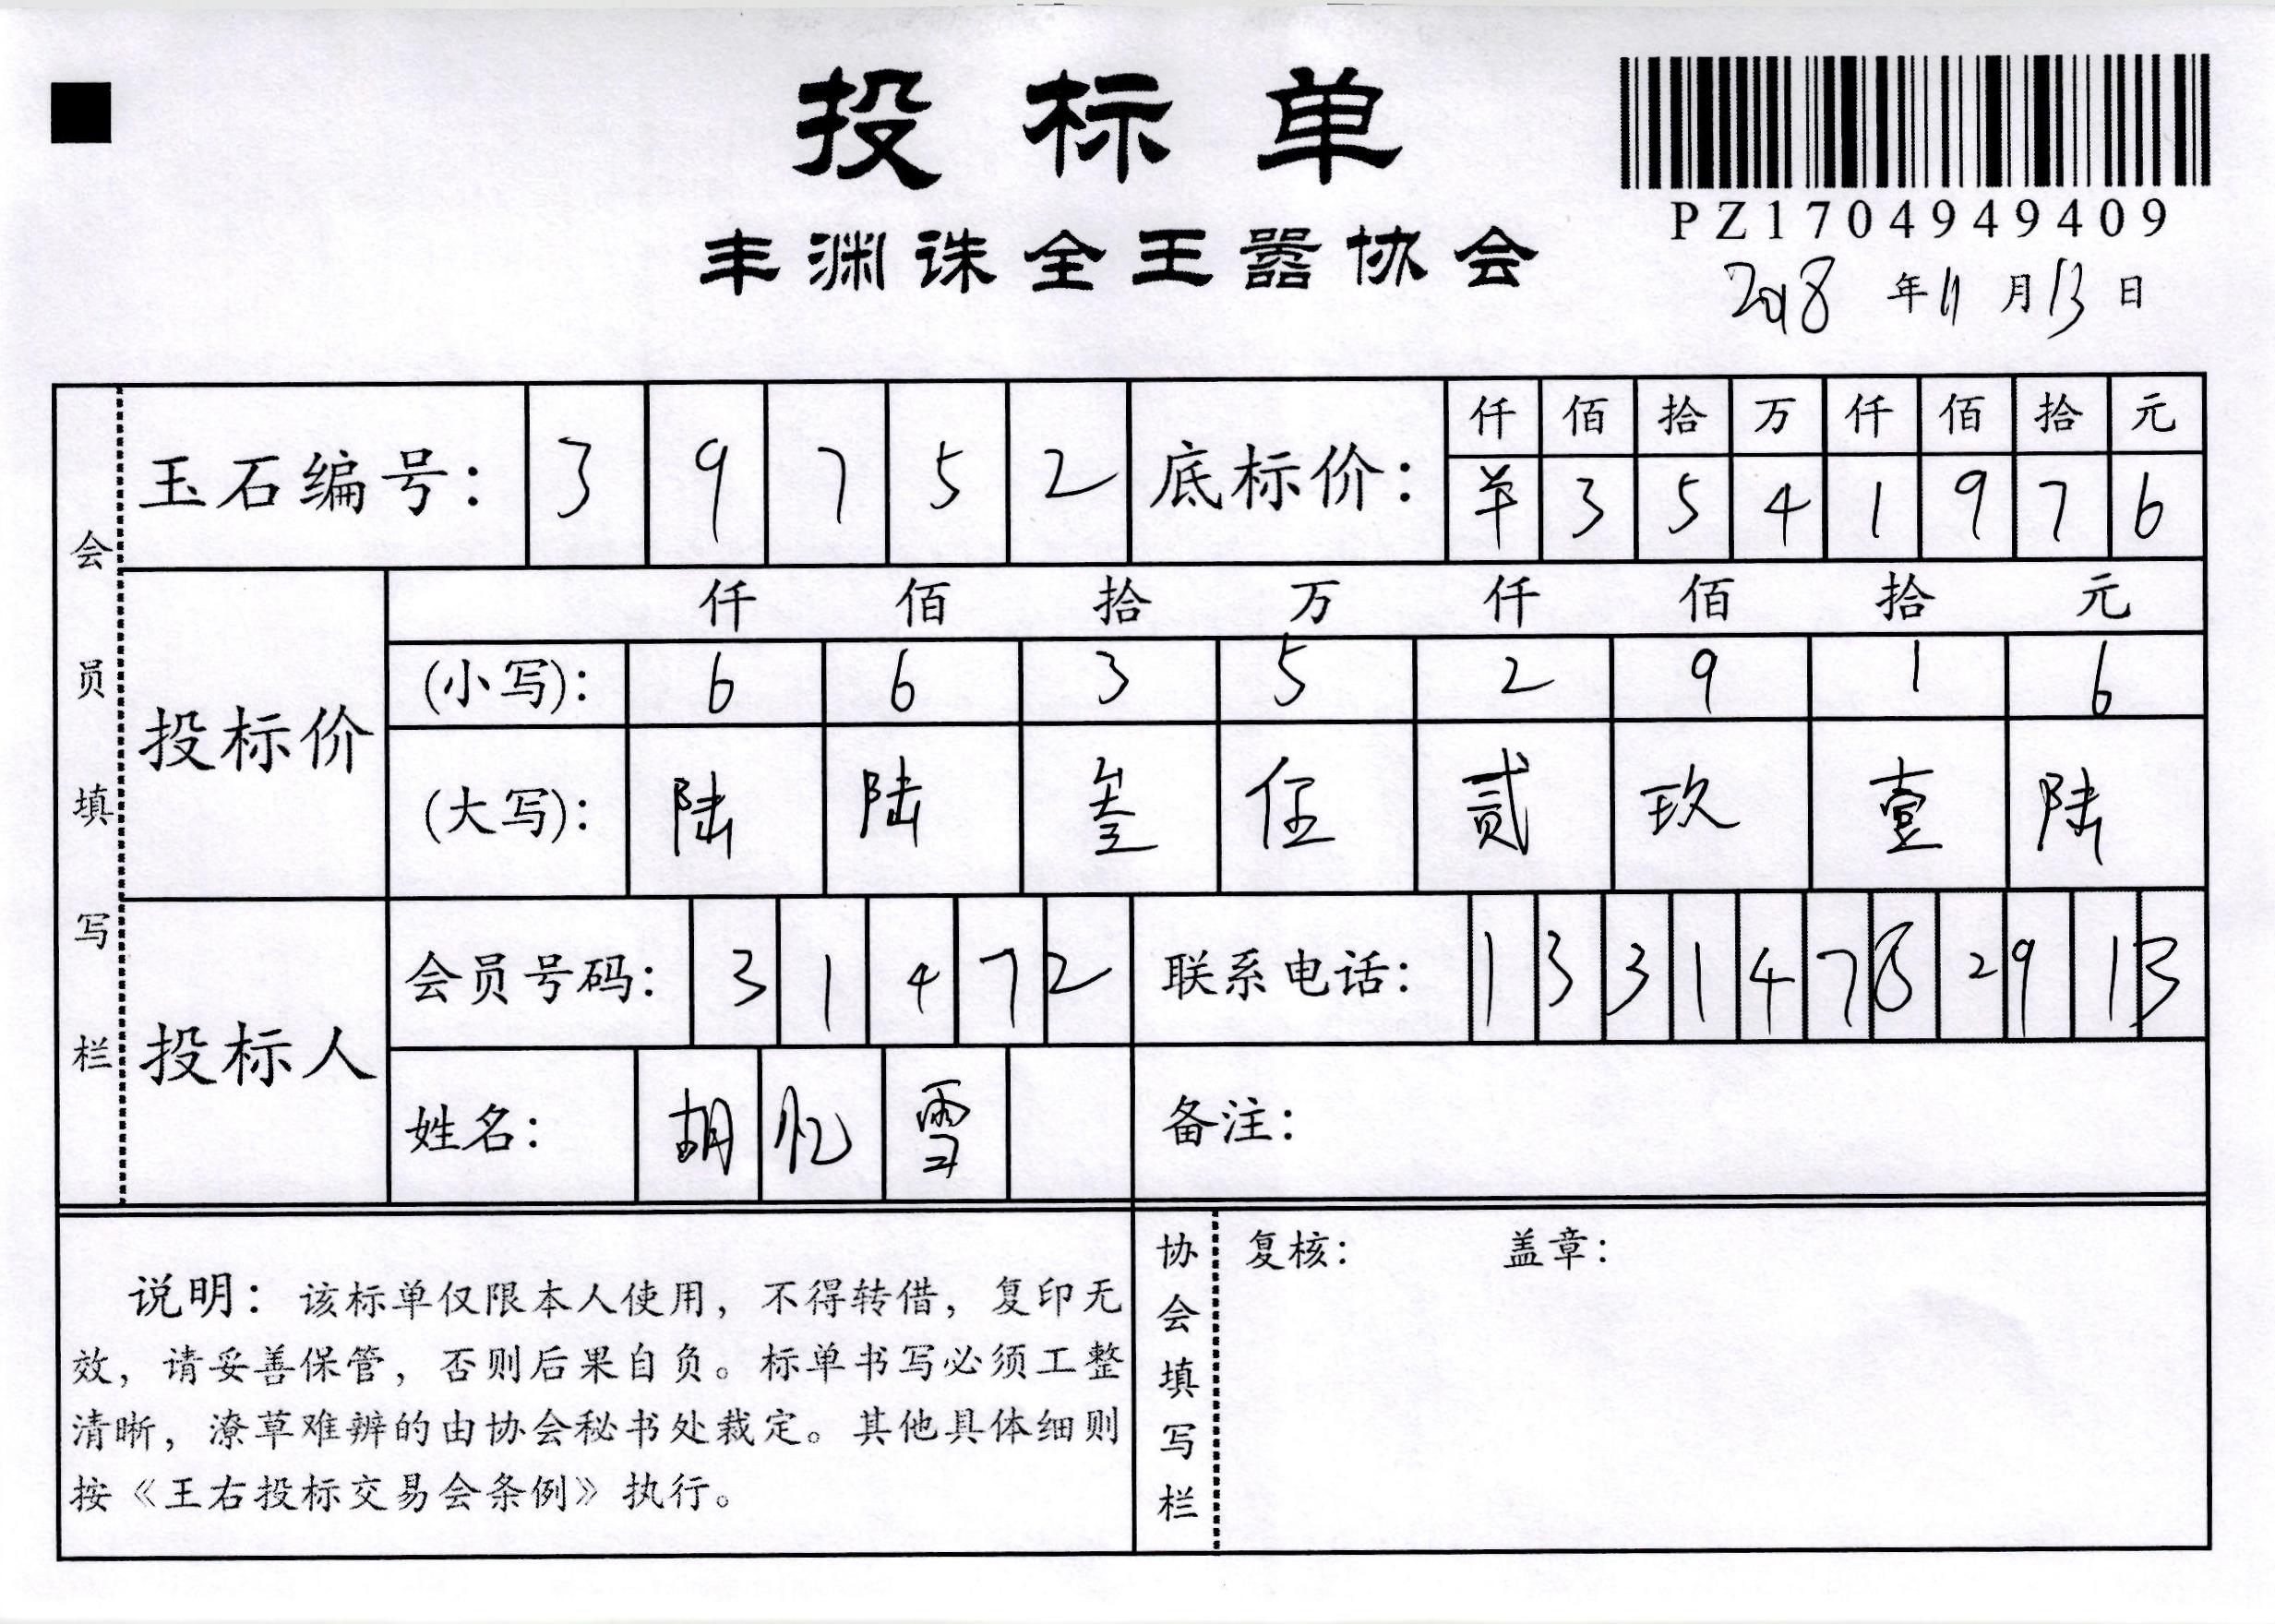 投标单
PZ1704949409
丰渊诛全王嚣协会
2018年11月13日
会员填写栏
玉石编号: 3 9 7 5 2
底标价: 仟 佰 拾 万 仟 佰 拾 元
羊 3 5 4 1 9 7 6
投标价
仟 佰 拾 万 仟 佰 拾 元
(小写): 6 6 3 5 2 9 1 6
(大写): 陆 陆 叁 伍 贰 玖 壹 陆
投标人
会员号码: 3 1 4 7 2
联系电话: 1 3 3 1 4 7 8 2 9 1 3
姓名: 胡 忆 雪
备注:
说明: 该标单仅限本人使用, 不得转借, 复印无
效, 请妥善保管, 否则后果自负。标单书写必须工整
清晰, 潦草难辨的由协会秘书处裁定。其他具体细则
按《王右投标交易会条例》执行。
协会填写栏
复核: 盖章: